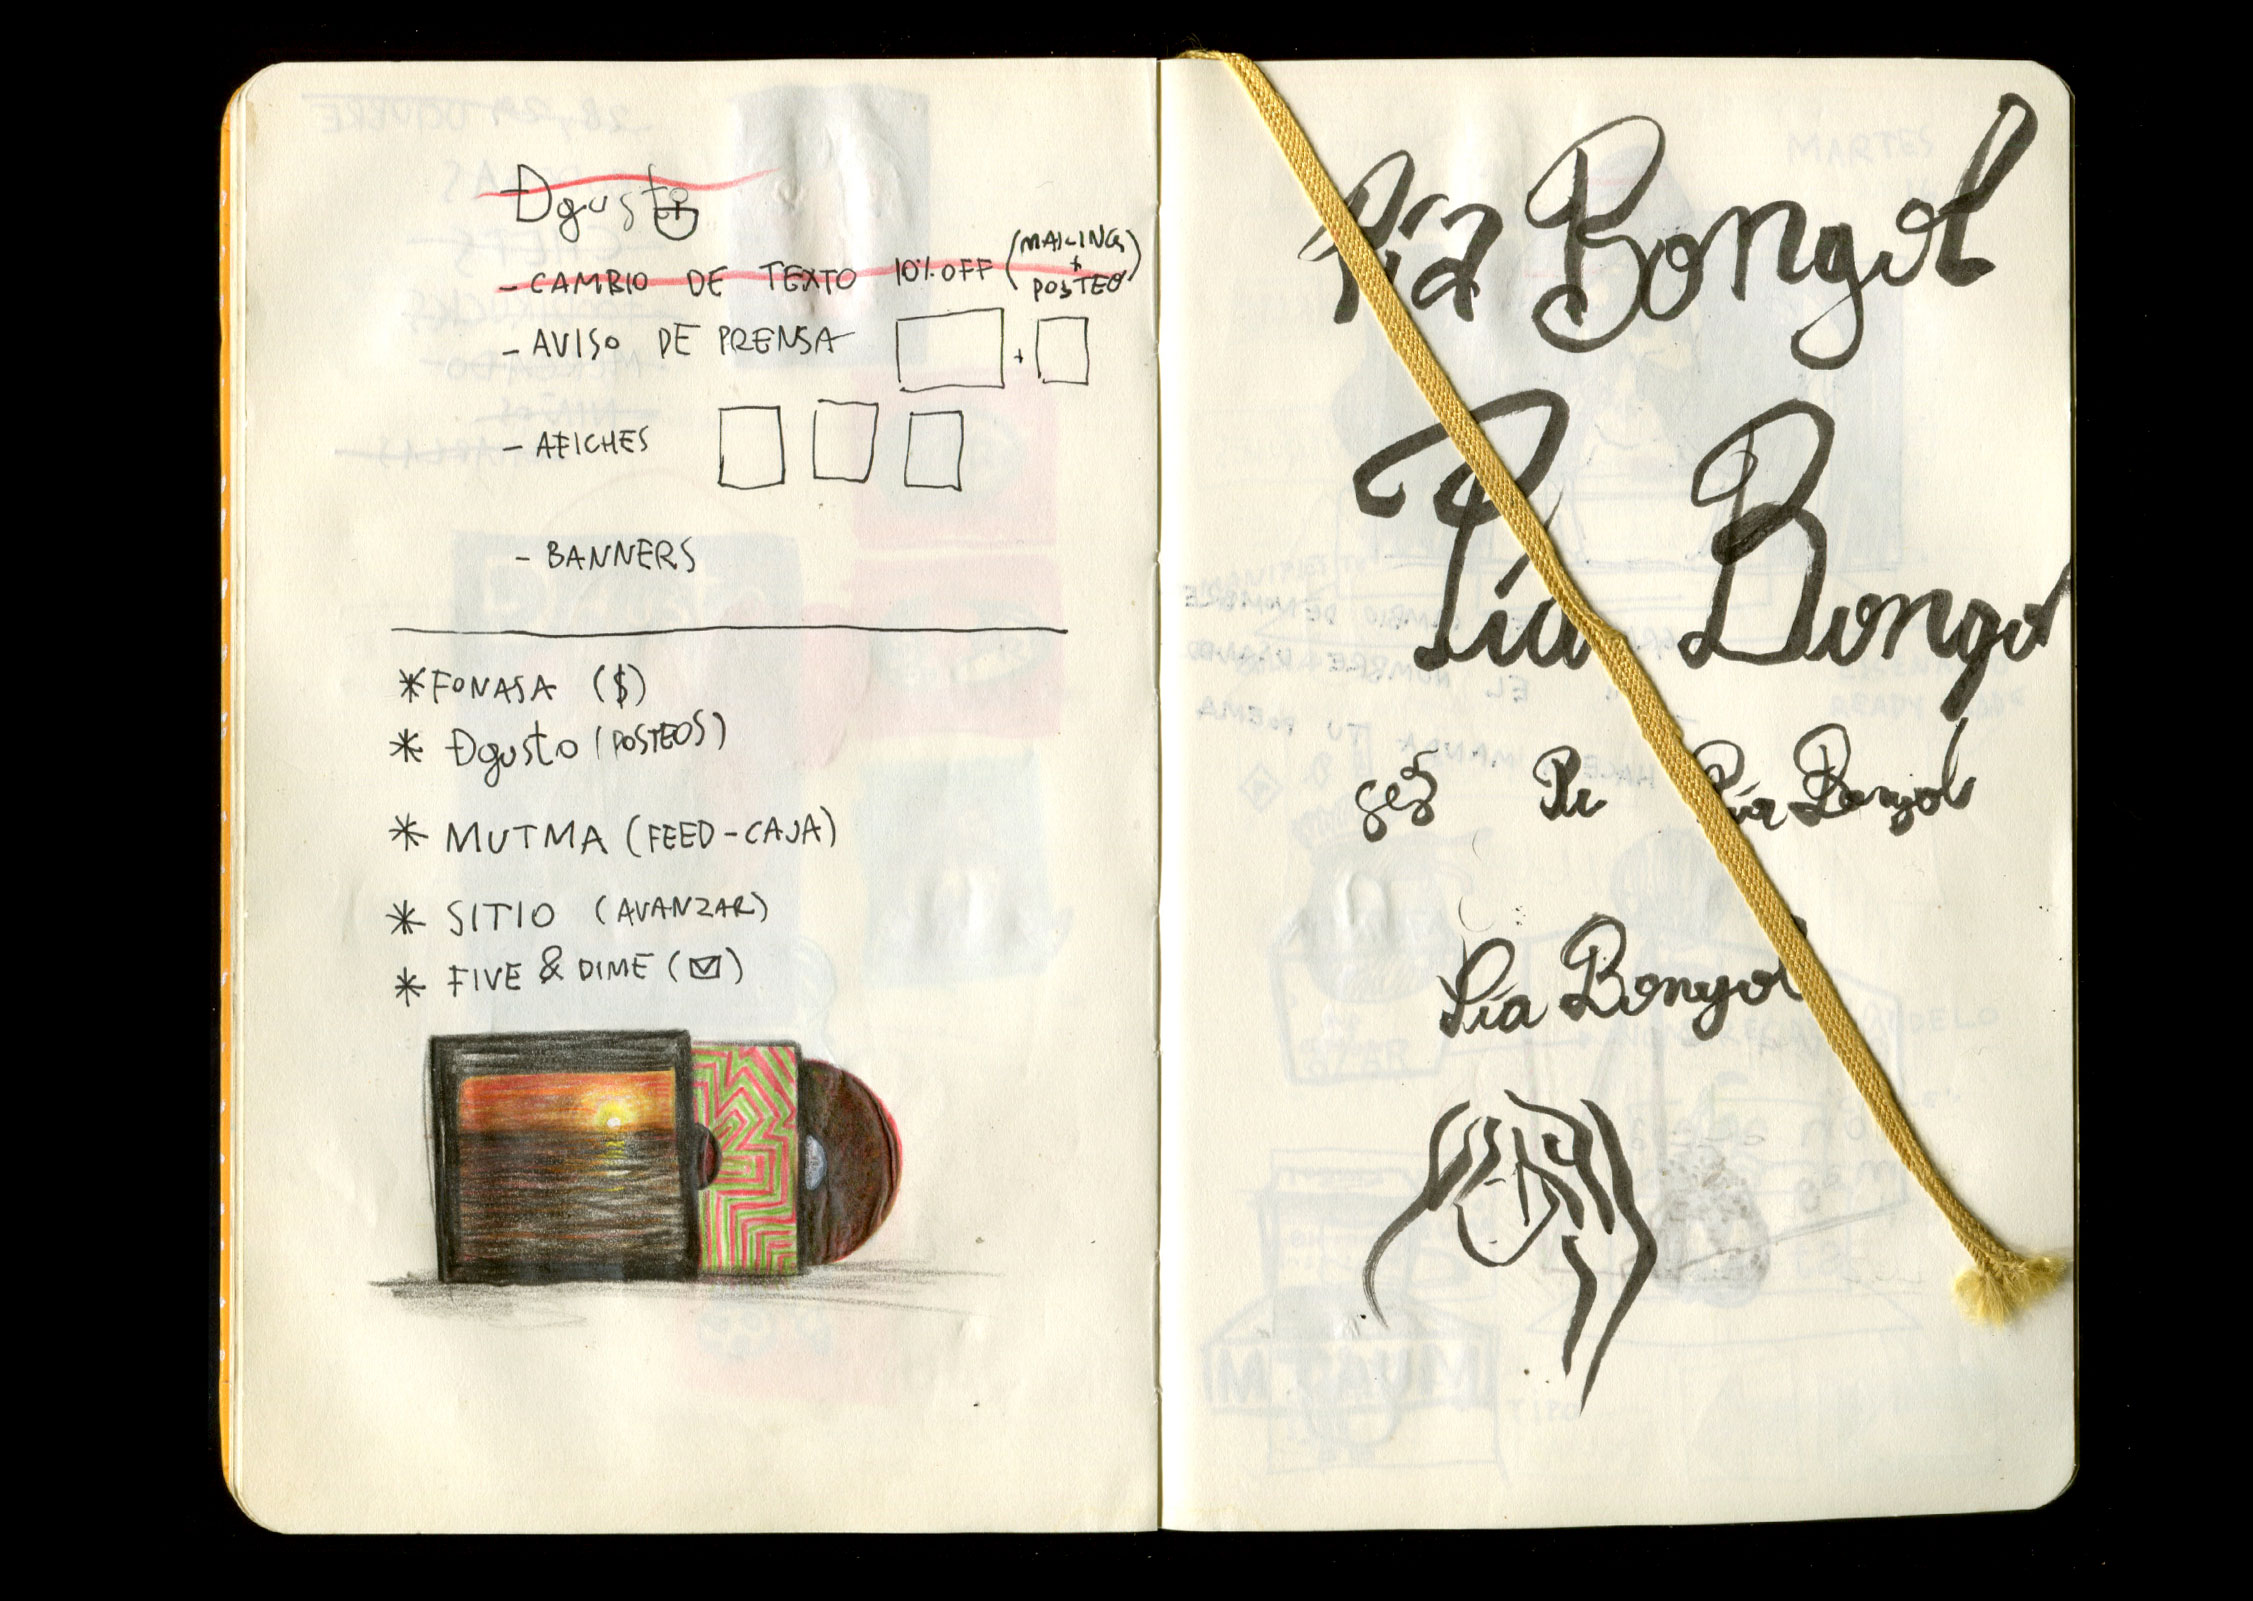 Đgusto
- CAMBIO DE TEXTO 10% OFF (MAILING + POSTEO)
- AVISO DE PRENSA +
- AFICHES
- BANNERS
* FONASA ($)
* Đgusto (POSTEOS)
* MUTMA (FEED-CAJA)
* SITIO (AVANZAR)
* FIVE & DIME ( )
Pía Bongol
Pía Bongol
Pi Pía Bongol
Pía Bongol